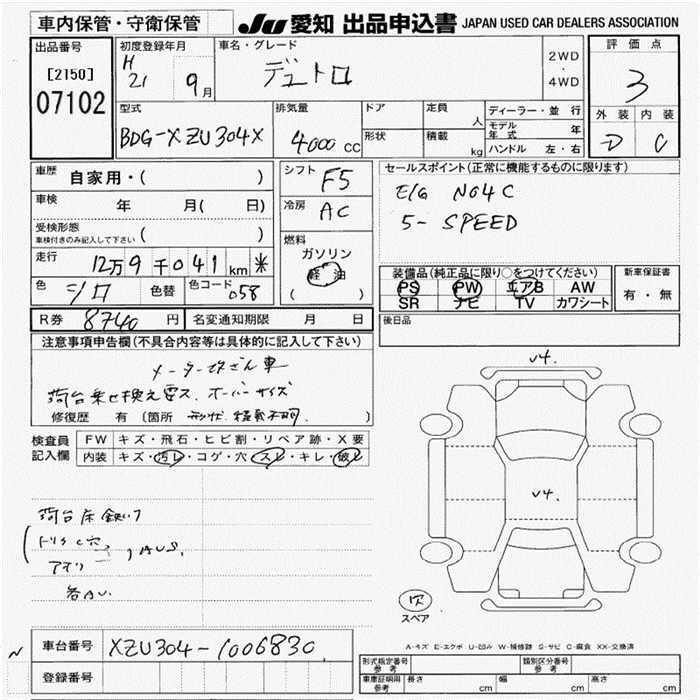 車内保管・守衛保管
JU 愛知 出品申込書 JAPAN USED CAR DEALERS ASSOCIATION
出品番号
[2150]
07102
初度登録年月
H
21 9月
車名・グレード
デュトロ
2WD
・
4WD
評価点
3
外装 内装
D C
型式
BDG-XZU304X
排気量
4000 CC
ドア
形状
定員
人
積載
kg
ディーラー・並行
モデル年式 年
ハンドル 左・右
車歴
自家用・( )
車検
年 月( 日)
受検形態
車検付きのみ記入して下さい ( )
走行
12万9千041km ✳
色
シロ
色替
色コード
058
シフト
F5
冷房
AC
燃料
ガソリン
軽油
( )
セールスポイント(正常に機能するものに限ります)
E/G N04C
5-SPEED
装備品(純正品に限り○をつけてください)
PS PW エアB AW
SR ナビ TV カワシート
新車保証書
有・無
R券 8740 円
名変通知期限 月 日
後日品
注意事項申告欄(不具合内容等は具体的に記入して下さい)
メーター改ざん車
荷台乗せ換え要ス、オーバーサイズ
修復歴 有 (箇所 )
検査員
記入欄
FW キズ・飛石・ヒビ割・リペア跡・X要
内装 キズ・汚レ・コゲ・穴・スレ・キレ・破レ
荷台床
アオリ
各AU.
V4.
V4.
スペア
A-キズ E-エクボ U-凹み W-補修跡 S-サビ C-腐食 XX-交換済
車台番号
XZU304-1006830
登録番号
形式指定番号
参考
類別区分番号
参考
車庫証明用
参考
長さ cm 幅 cm 高さ cm